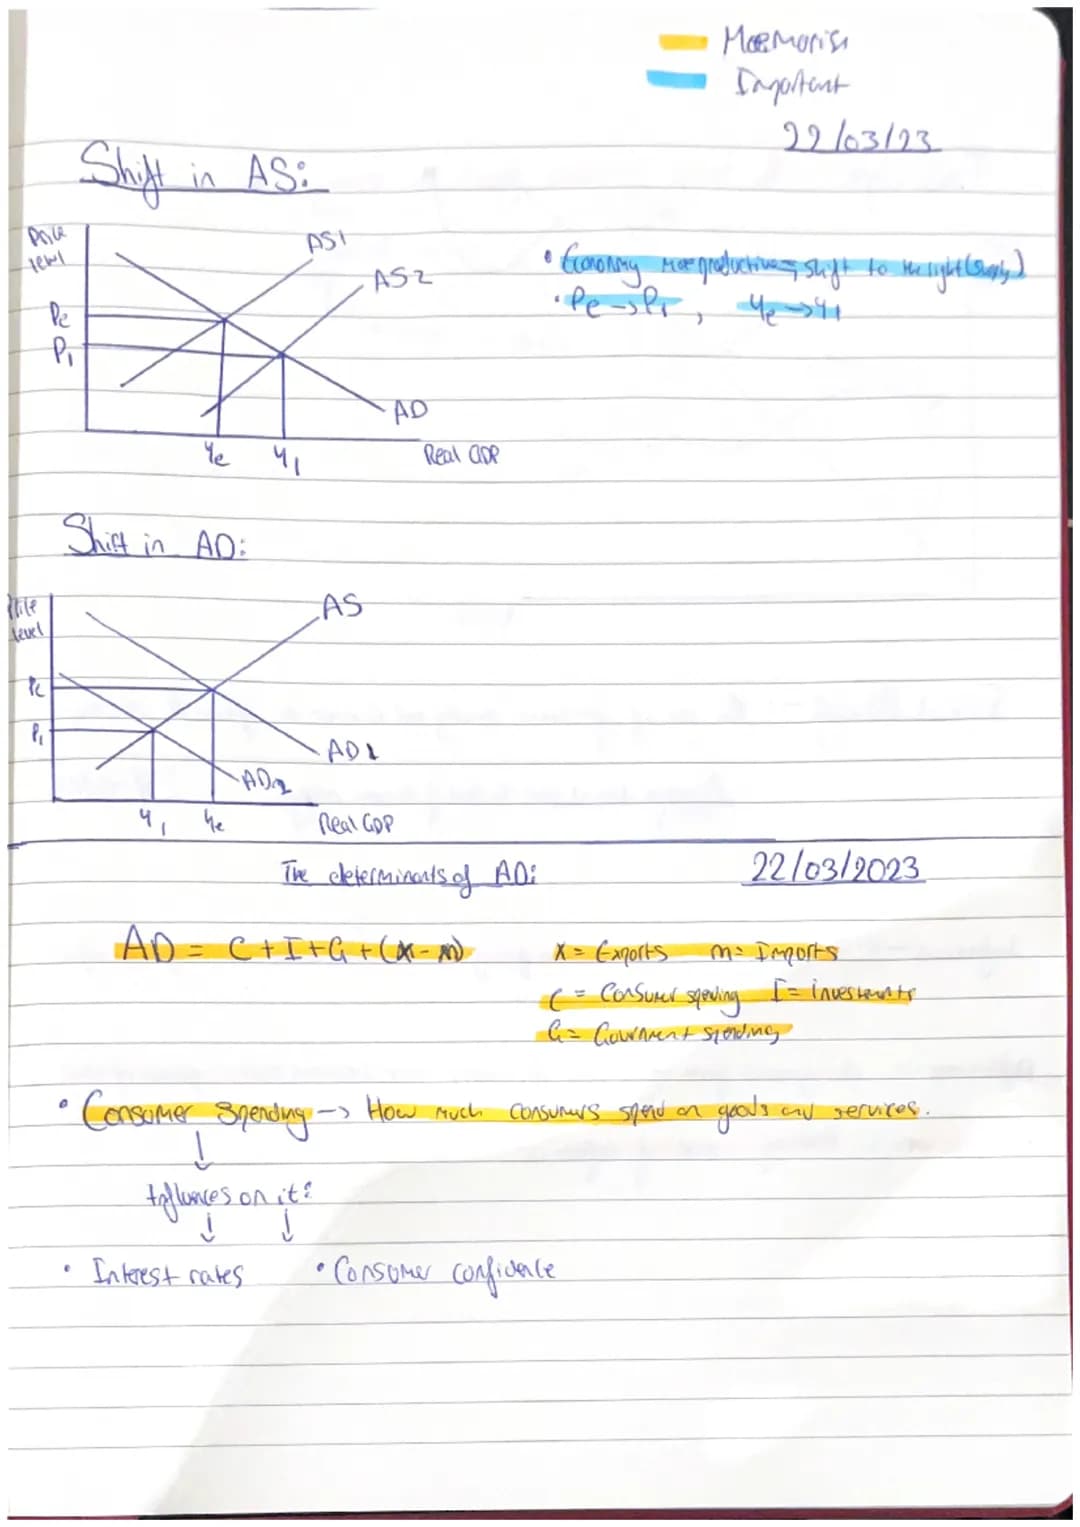 Memorise
Important
22/03/23
Shift in AS:
Price
level
AS1
AS2
• Economy more productive = shift to the right (supply)
• Pe → P1, Ye → Y1
Pe
P1
AD
Ye Y1 Real GDP
Shift in AD:
Price
level
AS
Pe
P1
AD1
AD2
Y1 Ye Real GDP
The determinants of AD: 22/03/2023
AD = C + I + G + (X - M)
X = Exports M = Imports
C = Consumer spending I = investments
G = Government spending
• Consumer Spending → How much consumers spend on goods and services.
↓
Influences on it:
↓ ↓
• Interest rates • Consumer confidence